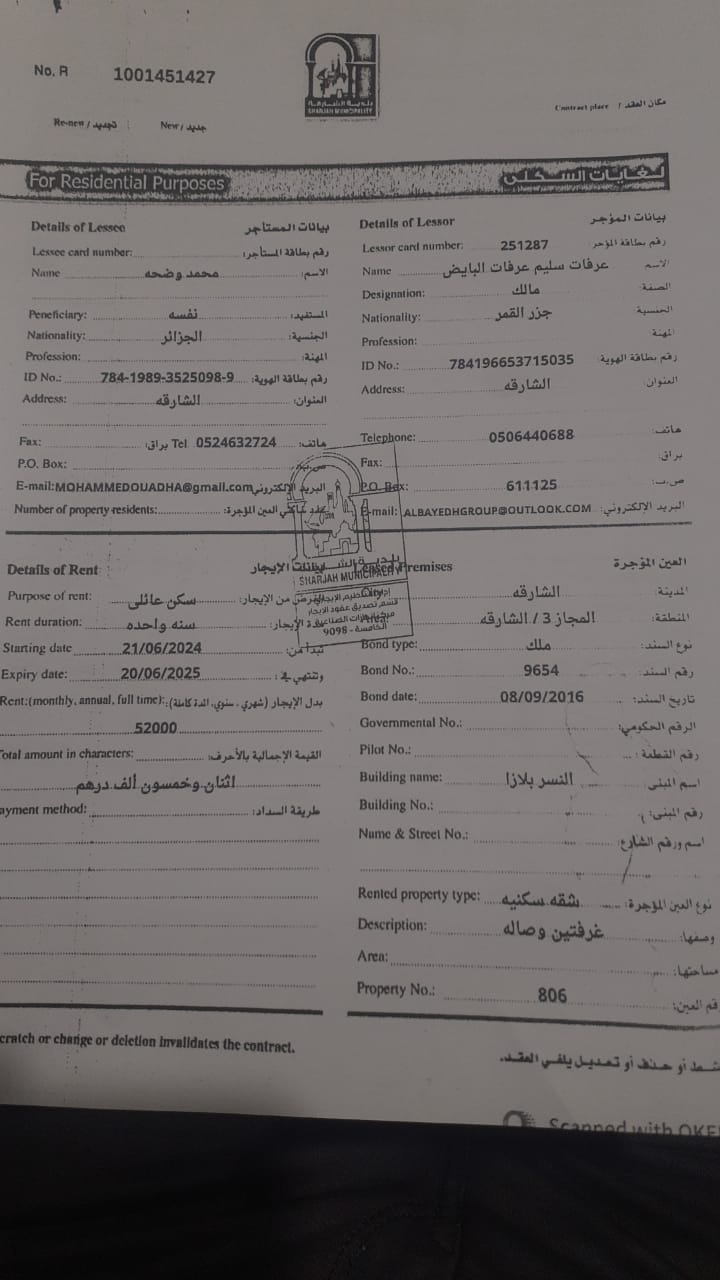 No. R 1001451427
بلدية الشارقة
SHARJAH MUNICIPALITY
Contract place / مكان العقد
Re-new / تجديد New / جديد
For Residential Purposes لغايات السكنى
Details of Lessee بيانات المستأجر
Lessee card number: رقم بطاقة المستأجر:
Name محمد وضحه الاسم:
Peneficiary: نفسه المستفيد:
Nationality: الجزائر الجنسية:
Profession: المهنة:
ID No.: 784-1989-3525098-9 رقم بطاقة الهوية:
Address: الشارقه العنوان:
Fax: براق: Tel 0524632724 هاتف:
P.O. Box: ص.ب:
E-mail: MOHAMMEDOUADHA@gmail.com البريد الإلكتروني
Number of property-residents: العين المؤجرة:
Details of Lessor بيانات المؤجر
Lessor card number: 251287 رقم بطاقة المؤجر:
Name عرفات سليم عرفات البايض الاسم
Designation: مالك الصفة:
Nationality: جزر القمر الجنسية:
Profession: المهنة:
ID No.: 784196653715035 رقم بطاقة الهوية:
Address: الشارقه العنوان:
Telephone: 0506440688 هاتف:
Fax: براق:
P.O. Box: 611125 ص.ب:
E-mail: ALBAYEDHGROUP@OUTLOOK.COM البريد الالكتروني:
بلدية الشارقة
SHARJAH MUNICIPALITY
قسم تصديق عقود الإيجار
الخامسة - 9098
Details of Rent بيانات الإيجار
Purpose of rent: سكن عائلي الغرض من الإيجار:
Rent duration: سنه واحده مدة الإيجار:
Starting date 21/06/2024 تبدأ من:
Expiry date: 20/06/2025 وتنتهي في:
Rent:(monthly, annual, full time): بدل الإيجار (شهري، سنوي، المدة كاملة):
52000
Total amount in characters: القيمة الإجمالية بالأحرف:
اثنان وخمسون ألف درهم
ayment method: طريقة السداد:
Leased Premises العين المؤجرة
City: الشارقه المدينة:
Area: المجاز 3 / الشارقه المنطقة:
Bond type: ملك نوع السند:
Bond No.: 9654 رقم السند:
Bond date: 08/09/2016 تاريخ السند:
Governmental No.: الرقم الحكومي:
Pilot No.: رقم القطعة:
Building name: النسر بلازا اسم المبنى
Building No.: رقم المبنى:
Name & Street No.: اسم ورقم الشارع:
Rented property type: شقه سكنيه نوع العين المؤجرة:
Description: غرفتين وصاله وصفها:
Area: مساحتها:
Property No.: 806 رقم العين:
cratch or change or deletion invalidates the contract. شط أو حذف أو تعديل يلغي العقد.
Scanned with OKE